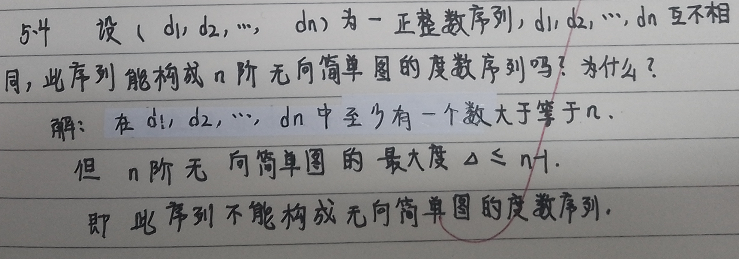 5.4 设(d1,d2,…, dn)为一正整数序列,d1,d2,…,dn互不相
同,此序列能构成n阶无向简单图的度数序列吗?为什么?
解:在d1,d2,…,dn中至少有一个数大于等于n.
但n阶无向简单图的最大度Δ≤n-1.
即此序列不能构成无向简单图的度数序列.